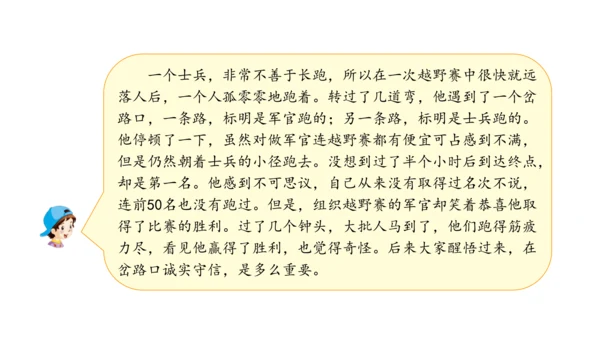 一个士兵，非常不善于长跑，所以在一次越野赛中很快就远
落人后，一个人孤零零地跑着。转过了几道弯，他遇到了一个岔
路口，一条路，标明是军官跑的；另一条路，标明是士兵跑的。
他停顿了一下，虽然对做军官连越野赛都有便宜可占感到不满，
但是仍然朝着士兵的小径跑去。没想到过了半个小时后到达终点，
却是第一名。他感到不可思议，自己从来没有取得过名次不说，
连前50名也没有跑过。但是，组织越野赛的军官却笑着恭喜他取
得了比赛的胜利。过了几个钟头，大批人马到了，他们跑得筋疲
力尽，看见他赢得了胜利，也觉得奇怪。后来大家醒悟过来，在
岔路口诚实守信，是多么重要。